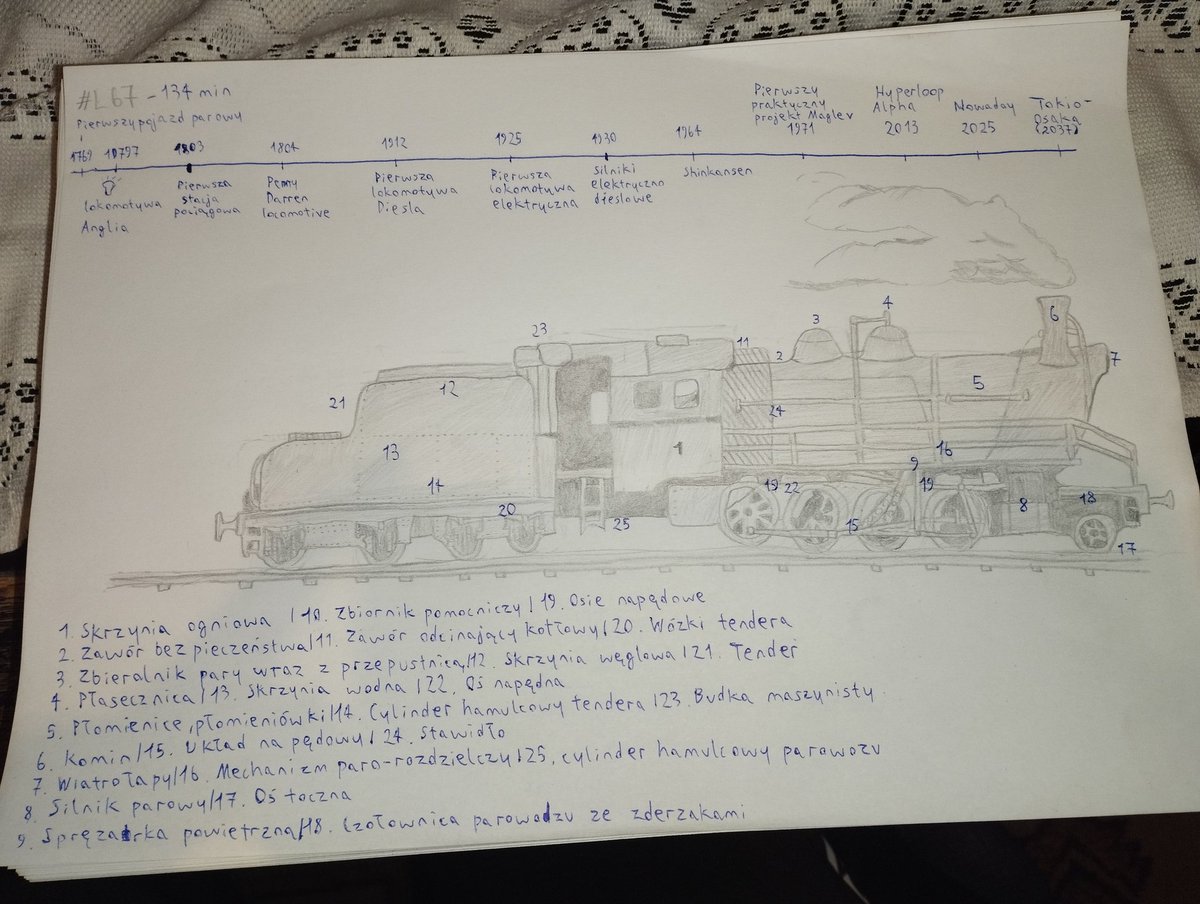 #L67 - 134 min
Pierwszy pojazd parowy
Pierwszy
praktyczny
projekt Maglev
1971
Hyperloop
Alpha
2013
Nowaday
2025
Tokio-
Osaka
(2037)
1769
1803
1804
1912
1925
1930
1964
lokomotywa
Anglia
Pierwsza
stacja
pociągowa
Penny
Darren
locomotive
Pierwsza
lokomotywa
Diesla
Pierwsza
lokomotywa
elektryczna
Silniki
elektryczno
dieslowe
Shinkansen
23
4
3
6
11
2
7
12
5
21
24
13
1
16
9
14
19
22
19
18
8
20
25
15
17
1. Skrzynia ogniowa / 10. Zbiornik pomocniczy / 19. Osie napędowe
2. Zawór bezpieczeństwa / 11. Zawór odcinający kotłowy / 20. Wózki tendera
3. Zbieralnik pary wraz z przepustnicą / 12. Skrzynia węglowa / 21. Tender
4. Płasecznica / 13. Skrzynia wodna / 22. Oś napędna
5. Płomienice, płomieniówki / 14. Cylinder hamulcowy tendera / 23. Budka maszynisty
6. Komin / 15. Układ napędowy / 24. Stawidło
7. Wiatrołapy / 16. Mechanizm paro-rozdzielczy / 25. cylinder hamulcowy parowozu
8. Silnik parowy / 17. Oś toczna
9. Sprężarka powietrzna / 18. Czołownica parowozu ze zderzakami